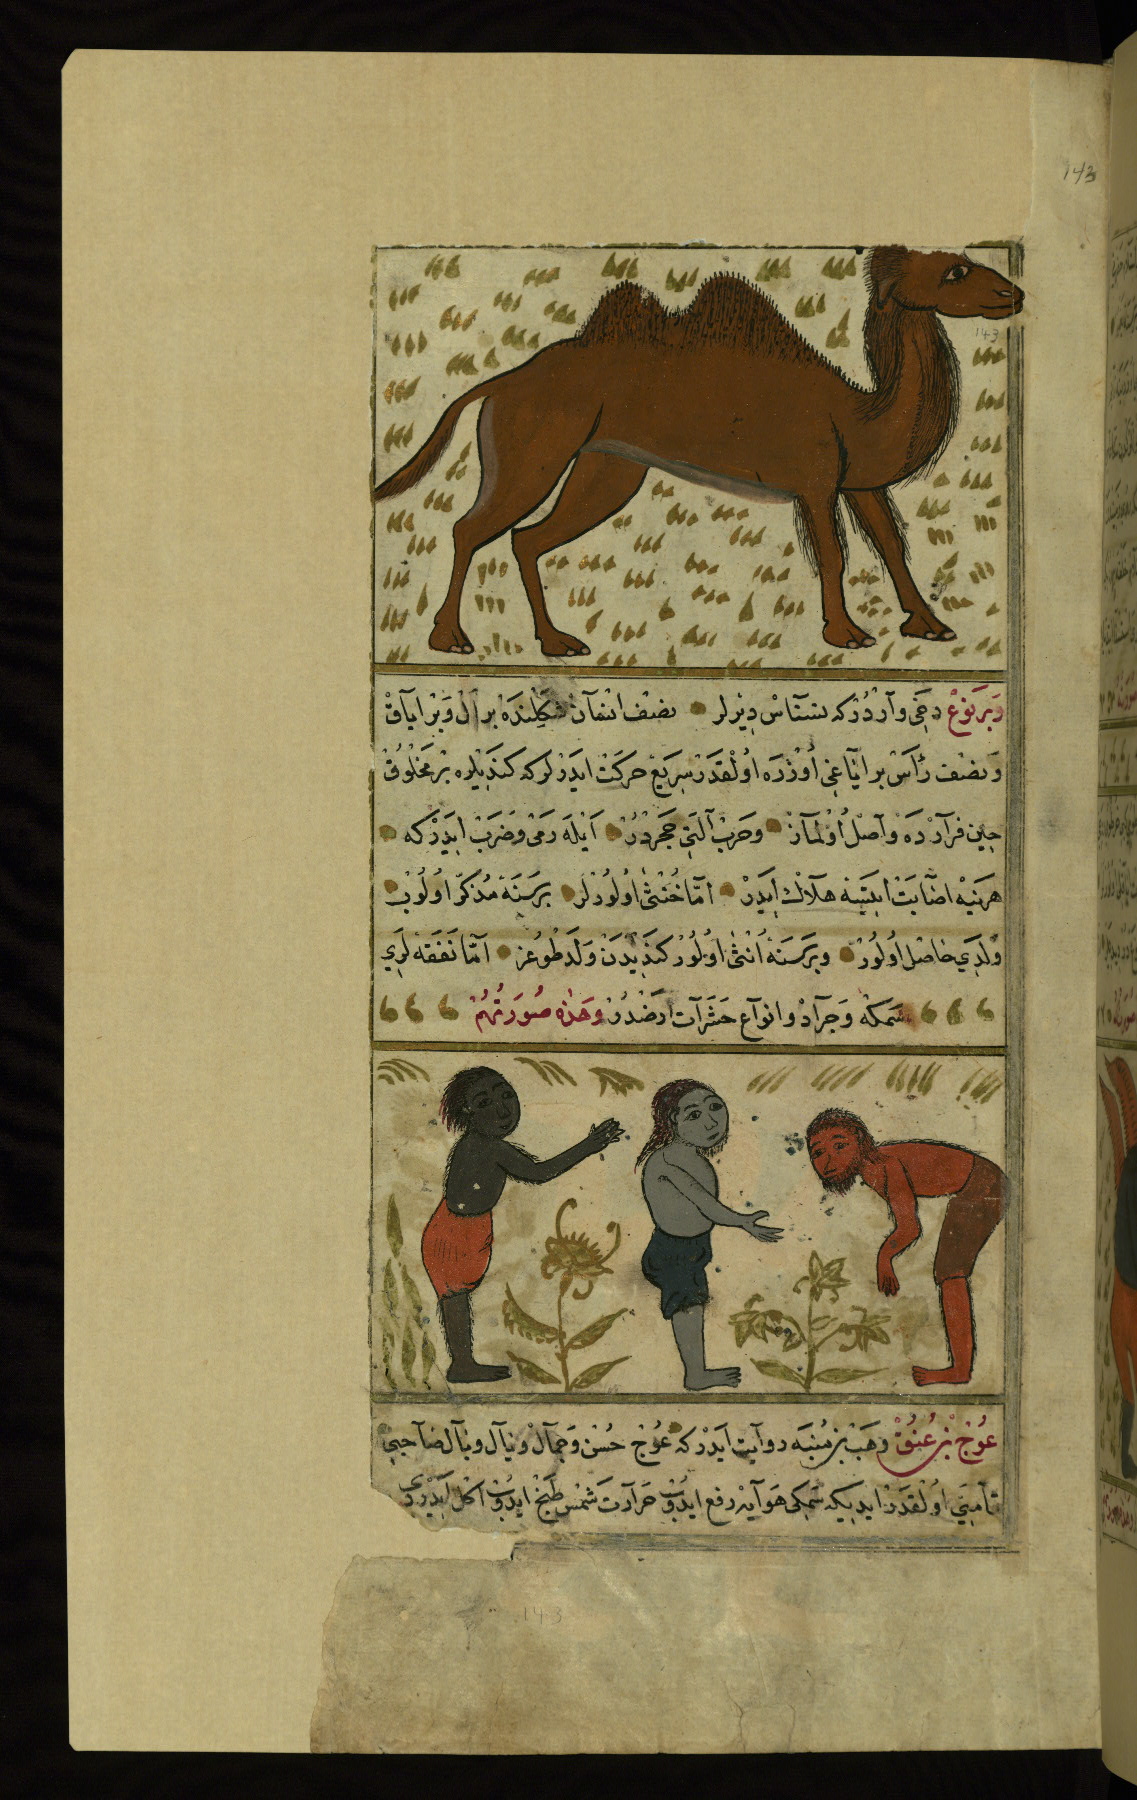 143
143
وَبَر نَوْعْ دَخِي وآرْدُرْكه نسنآسْ دِيْرلر نصف انسآن شكلِندَه بر ال وَبْر اياقْ
وَنصف رَأسْ بر اياغى اُوْزَرَه اولْقدَرْ سريعْ حركَتْ ايدَرْلركه كندِيلره بز مخلُوقْ
حِين فرآرْدَه وآصل اُوْلمآزْ وحَربْ آلتى حجردُرْ ايله رمى وضَربْ ايدَرْكه
هر نيه اصآبَتْ ايتسه هلآكْ ايَدرْ امّا خُنثى اولُورْلر بر سَنَه مُذكّر اولُوبْ
وَلدِي حاصل اُولُورْ وبر سَنَه اُنثى اوُلُورْ كندِيدَنْ ولَدْ طوغر امّا نَفَقَه لَرِي
سَمكْ وَجرآدْ وانواع حشَرآت ارضدُرْ وَهذِه صُورَتُهُمْ
عُوْج بن عُنُقْ وهَبْ بن مُنبّه روآيت ايدَرْكه عُوْج حُسن وَجمآل ويآل وبآل صآحبى
قآمتى اوُلْقدَرْ ايديكه سَمكى هوآيه رفع ايدُوبْ حَرآرت شمس طَبْخ ايدُوبْ اكل ايدَرْدى
143